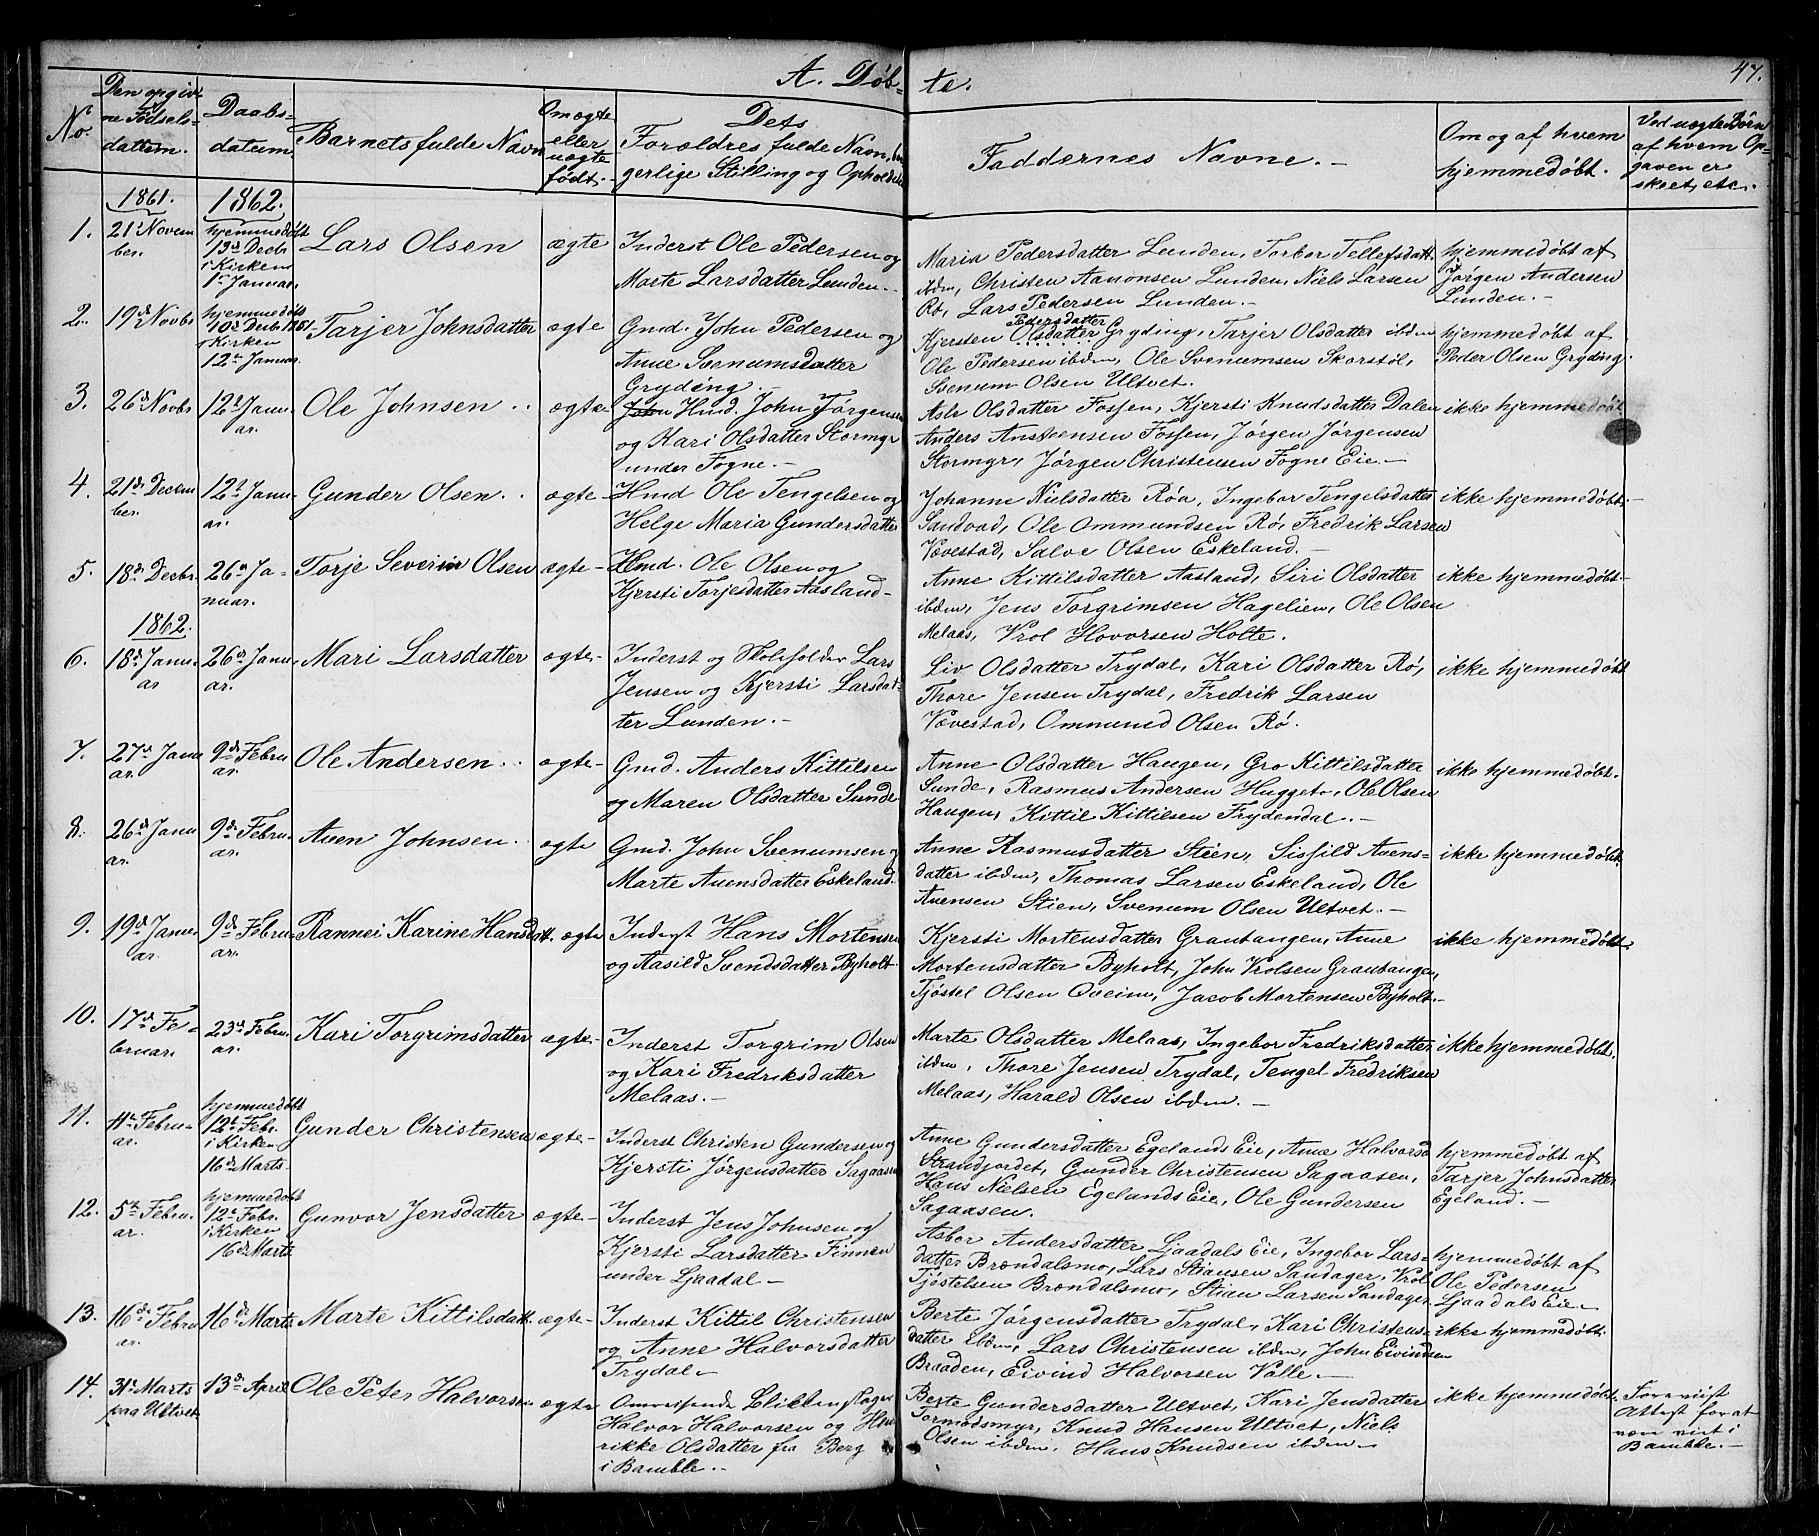 47.
A. Døbte.
No.
Den opgivne Fødselsdatum.
Daabsdatum
Barnets fulde Navn
Om ægte eller uægte født.
Dets Forældres fulde Navn, borgerlige Stilling og Opholdssted
Faddernes Navne.
Om og af hvem hjemmedøbt.
Ved uægte Børn af hvem Opgaven er skeet, etc.
1861.
1862.
1.
21d Novem
ber.
hjemmedøbt
13d Decbr
i Kirken
1ste Januar.
Lars Olsen
ægte
Inderst Ole Pedersen og
Marte Larsdatter Lunden.
Maria Pedersdatter Lunden, Torbor Tellefsdatt.
ibdm, Christen Aanonsen Lunden, Niels Larsen
Rø, Lars Pedersen Lunden.-
hjemmedøbt af
Jørgen Andersen
Lunden.-
2.
19d Novbr
hjemmedøbt
10d Decbr 1861
i Kirken
12te Januar.
Tarjer Johnsdatter
ægte
Gmd. John Pedersen og
Anne Svenumsdatter
Gryding.-
Pedersdatter
Kjersten Olsdatter Gryding, Tarjer Olsdatter ibdm
Ole Pedersen ibdm, Ole Svenumsen Skorstøl,
Svenum Olsen Ultvet.
hjemmedøbt af
Peder Olsen Gryding.
3.
26d Novbr
12te Janu-
ar.
Ole Johnsen
ægte
John Hmd. John Jørgensen
og Kari Olsdatter Stormyr
under Fogne.-
Aslv Olsdatter Fossen, Kjersti Knudsdatter Dalen
Anders Anstensen Fossen, Jørgen Jørgensen
Stormyr, Jørgen Christensen Fogne Eie.-
ikke hjemmedøbt
4.
21de Decem
ber.
12te Janu-
ar.
Gunder Olsen
ægte-
Hmd Ole Tengelsen og
Helge Maria Gundersdatter
Johanne Nielsdatter Røa, Ingebor Tengelsdatter
Sandvad, Ole Ommundsen Rø, Fredrik Larsen
Vævestad, Salve Olsen Eskeland.-
ikke hjemmedøbt.-
5.
18d Decbr.
26d Ja-
nuar.
Torje Severin Olsen
ægte-
Hmd. Ole Olsen og
Kjersti Torjesdatter Aasland-
Anne Kittilsdatter Aasland, Siri Olsdatter
ibdm, Jens Torgrimsen Hagelien, Ole Olsen
Melaas, Vrol Hovorsen Holte.
ikke hjemmedøbt-
1862.
6.
18d Janu-
ar
26d Janu-
ar.
Mari Larsdatter
ægte-
Inderst og Skoleholder Lars
Jensen og Kjersti Larsdat-
ter Lunden.-
Liv Olsdatter Trydal, Kari Olsdatter Rø,
Thore Jensen Trydal, Fredrik Larsen
Vævestad, Ommund Olsen Rø.
ikke hjemmedøbt
7.
27d Janu
ar.
9d Febru
ar.
Ole Andersen.
ægte-
Gmd. Anders Kittilsen
og Maren Olsdatter Sunde
Anne Olsdatter Haugen, Gro Kittilsdatter
Sunde, Rasmus Andersen Huggeto, Ole Olsen
Haugen, Kittil Kittilsen Frydendal.-
ikke hjemmedøbt.
8.
26d Janu
ar.
9d Febru-
ar.
Auen Johnsen.
ægte
Gmd. John Svenumsen og
Marte Auensdatter Eskeland.
Anne Rasmusdatter Stien, Sissild Auens-
datter ibdm, Thomas Larsen Eskeland, Ole
Auensen Stien, Svenum Olsen Ultvet.-
ikke hjemmedøbt
9.
19d Janu-
ar.
9d Febru-
ar.
Rannei Karine Hansdatt.
ægte
Inderst Hans Mortensen
og Aasild Svendsdatter Byholt
Kjersti Mortensdatter Grautangen, Anne
Mortensdatter Byholt, John Vrolsen Grautangen,
Tjøstel Olsen Oveim, Jacob Mortensen Byholt.-
ikke hjemmedøbt.
10.
17d Fe-
bruar.
23d Febru-
ar.
Kari Torgrimsdatter
ægte-
Inderst Torgrim Olsen
og Kari Fredriksdatter
Melaas.-
Marte Olsdatter Melaas, Ingebor Fredriksdatter
ibdm, Thore Jensen Trydal, Tengel Fredriksen
Melaas, Harald Olsen ibdm.-
ikke hjemmedøbt.
11.
11te Febru-
ar.
hjemmedøbt
12te Febr.
i Kirken
16d Marts-
Gunder Christensen
ægte-
Inderst Christen Gundersen og
Kjersti Jørgensdatter Sagaasen
Anne Gundersdatter Egelands Eie, Anne Halvorsd
Strandjordet, Gunder Christensen Sagaasen,
Hans Nielsen Egelands Eie, Ole Gundersen
Sagaasen.
hjemmedøbt af
Tarjer Johnsdatter
Egeland.-
12.
5te Febru-
ar.
hjemmedøbt
12te Febr.
i Kirken
16d Marts
Gunvor Jensdatter
ægte-
Inderst Jens Johnsen og
Kjersti Larsdatter Finnen
under Ljaadal-
Asbor Andersdatter Ljaadals Eie, Ingebor Lars-
datter Brændalsmo, Lars Stiansen Sandager, Vrol
Tjøstelsen Brændalsmo, Stian Larsen Sandager
hjemmedøbt af
Ole Pedersen
Ljaadals Eie-
13.
16de Febru
ar.
16d Marts
Marte Kittilsdatt.
ægte-
Inderst Kittil Christensen
og Anne Halvorsdatter
Trydal-
Berte Jørgensdatter Trydal, Kari Christens-
datter ibdm, Lars Christensen ibdm, John Eivindsen
Braaden, Eivind Halvorsen Valle.-
ikke hjemmedøbt.
14.
31te Marts
paa Ultvet
13d April
Ole Peter Halvorsen
ægte
Omreisende Blikkenslager
Halvor Halvorsen og Hen
rikke Olsdatter fra Berg
i Bamble.-
Berte Gundersdatter Ultvet, Kari Jensdatter
Tormodsmyr, Knud Hansen Ultvet, Niels
Olsen ibdm, Hans Knudsen ibdm-
ikke hjemmedøbt.
Foreviist
Attest for at
være viet i
Bamble.-